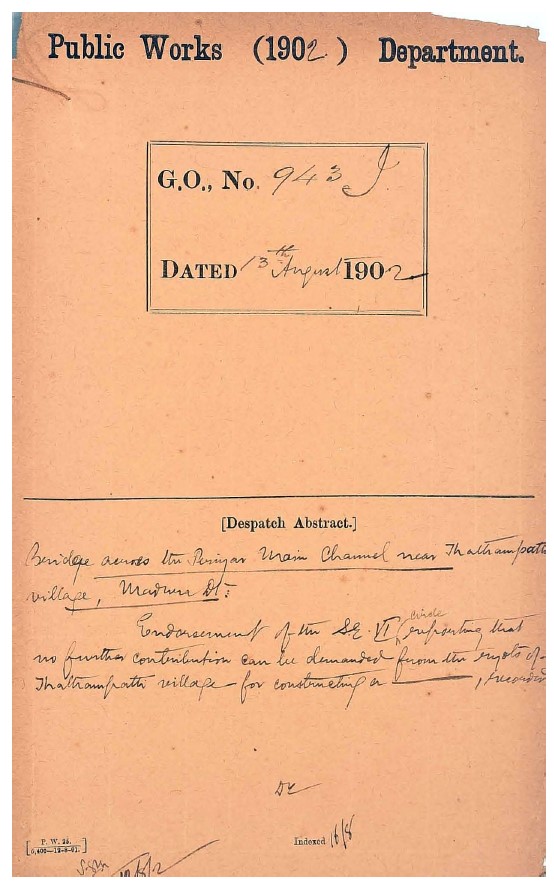 Public Works (1902) Department.
G.O., No. 943 I.
DATED 13th August 1902
[Despatch Abstract.]
Bridge across the Periyar Main Channel near Thattampatti
village, Madura Dt:
Endorsement of the SE. VI circle reporting that
no further contribution can be demanded from the ryots of
Thattampatti village for constructing a ———, recorded
Indexed 16/8
[P. W. 25.
6,400—12-8-01.]